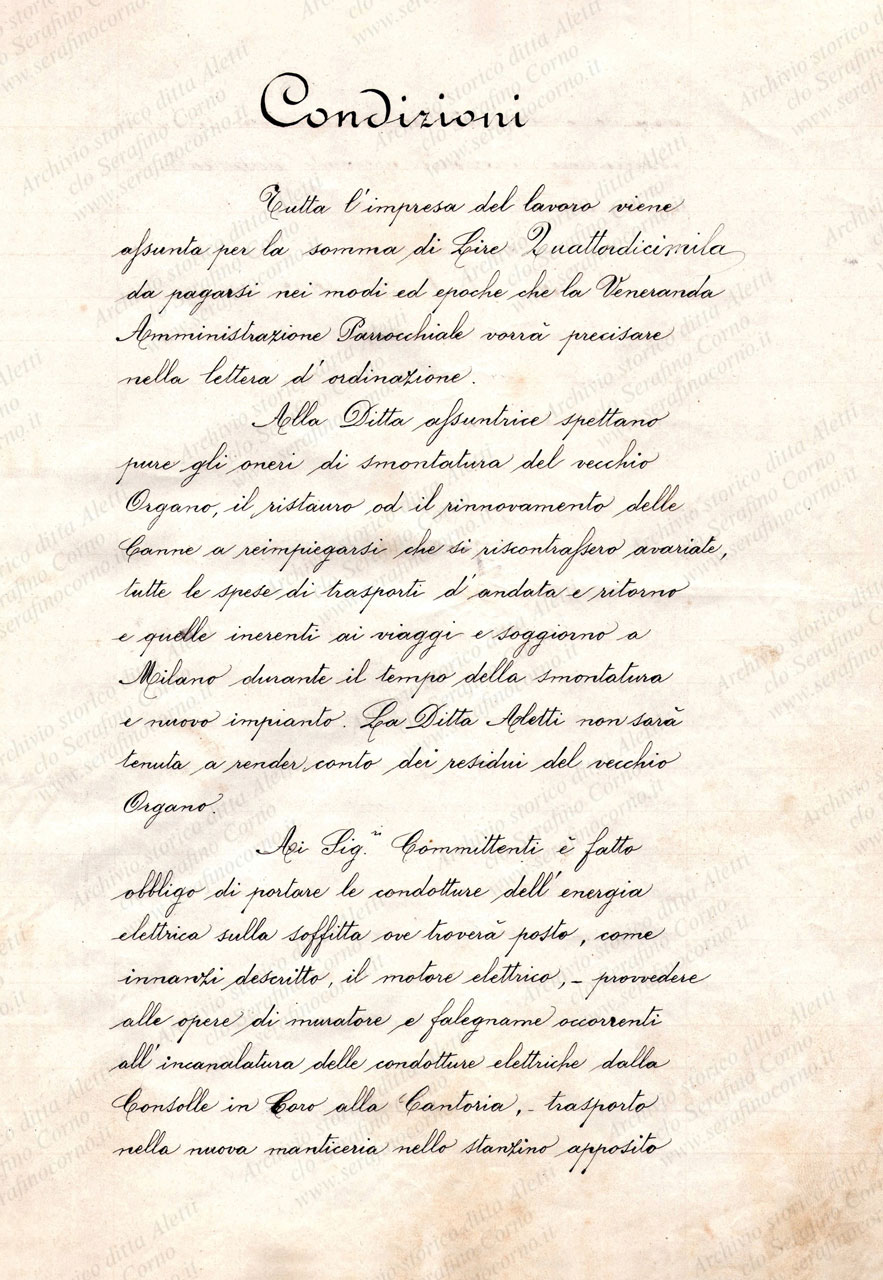 Condizioni
Tutta l'impresa del lavoro viene
assunta per la somma di Lire Quattordicimila
da pagarsi nei modi ed epoche che la Veneranda
Amministrazione Parrocchiale vorrà precisare
nella lettera d'ordinazione.
Alla Ditta assuntrice spettano
pure gli oneri di smontatura del vecchio
Organo, il ristauro od il rinnovamento delle
Canne a reimpiegarsi che si riscontrassero avariate,
tutte le spese di trasporti d'andata e ritorno
e quelle inerenti ai viaggi e soggiorno a
Milano durante il tempo della smontatura
e nuovo impianto. La Ditta Aletti non sarà
tenuta a render conto dei residui del vecchio
Organo.
Ai Sig.ri Committenti è fatto
obbligo di portare le condotture dell'energia
elettrica sulla soffitta ove troverà posto, come
innanzi descritto, il motore elettrico, - provvedere
alle opere di muratore e falegname occorrenti
all'incanalatura delle condotture elettriche dalla
Consolle in Coro alla Cantoria, - trasporto
nella nuova manticeria nello stanzino apposito
Archivio storico ditta Aletti
c/o Serafino Corno
www.serafinocorno.it